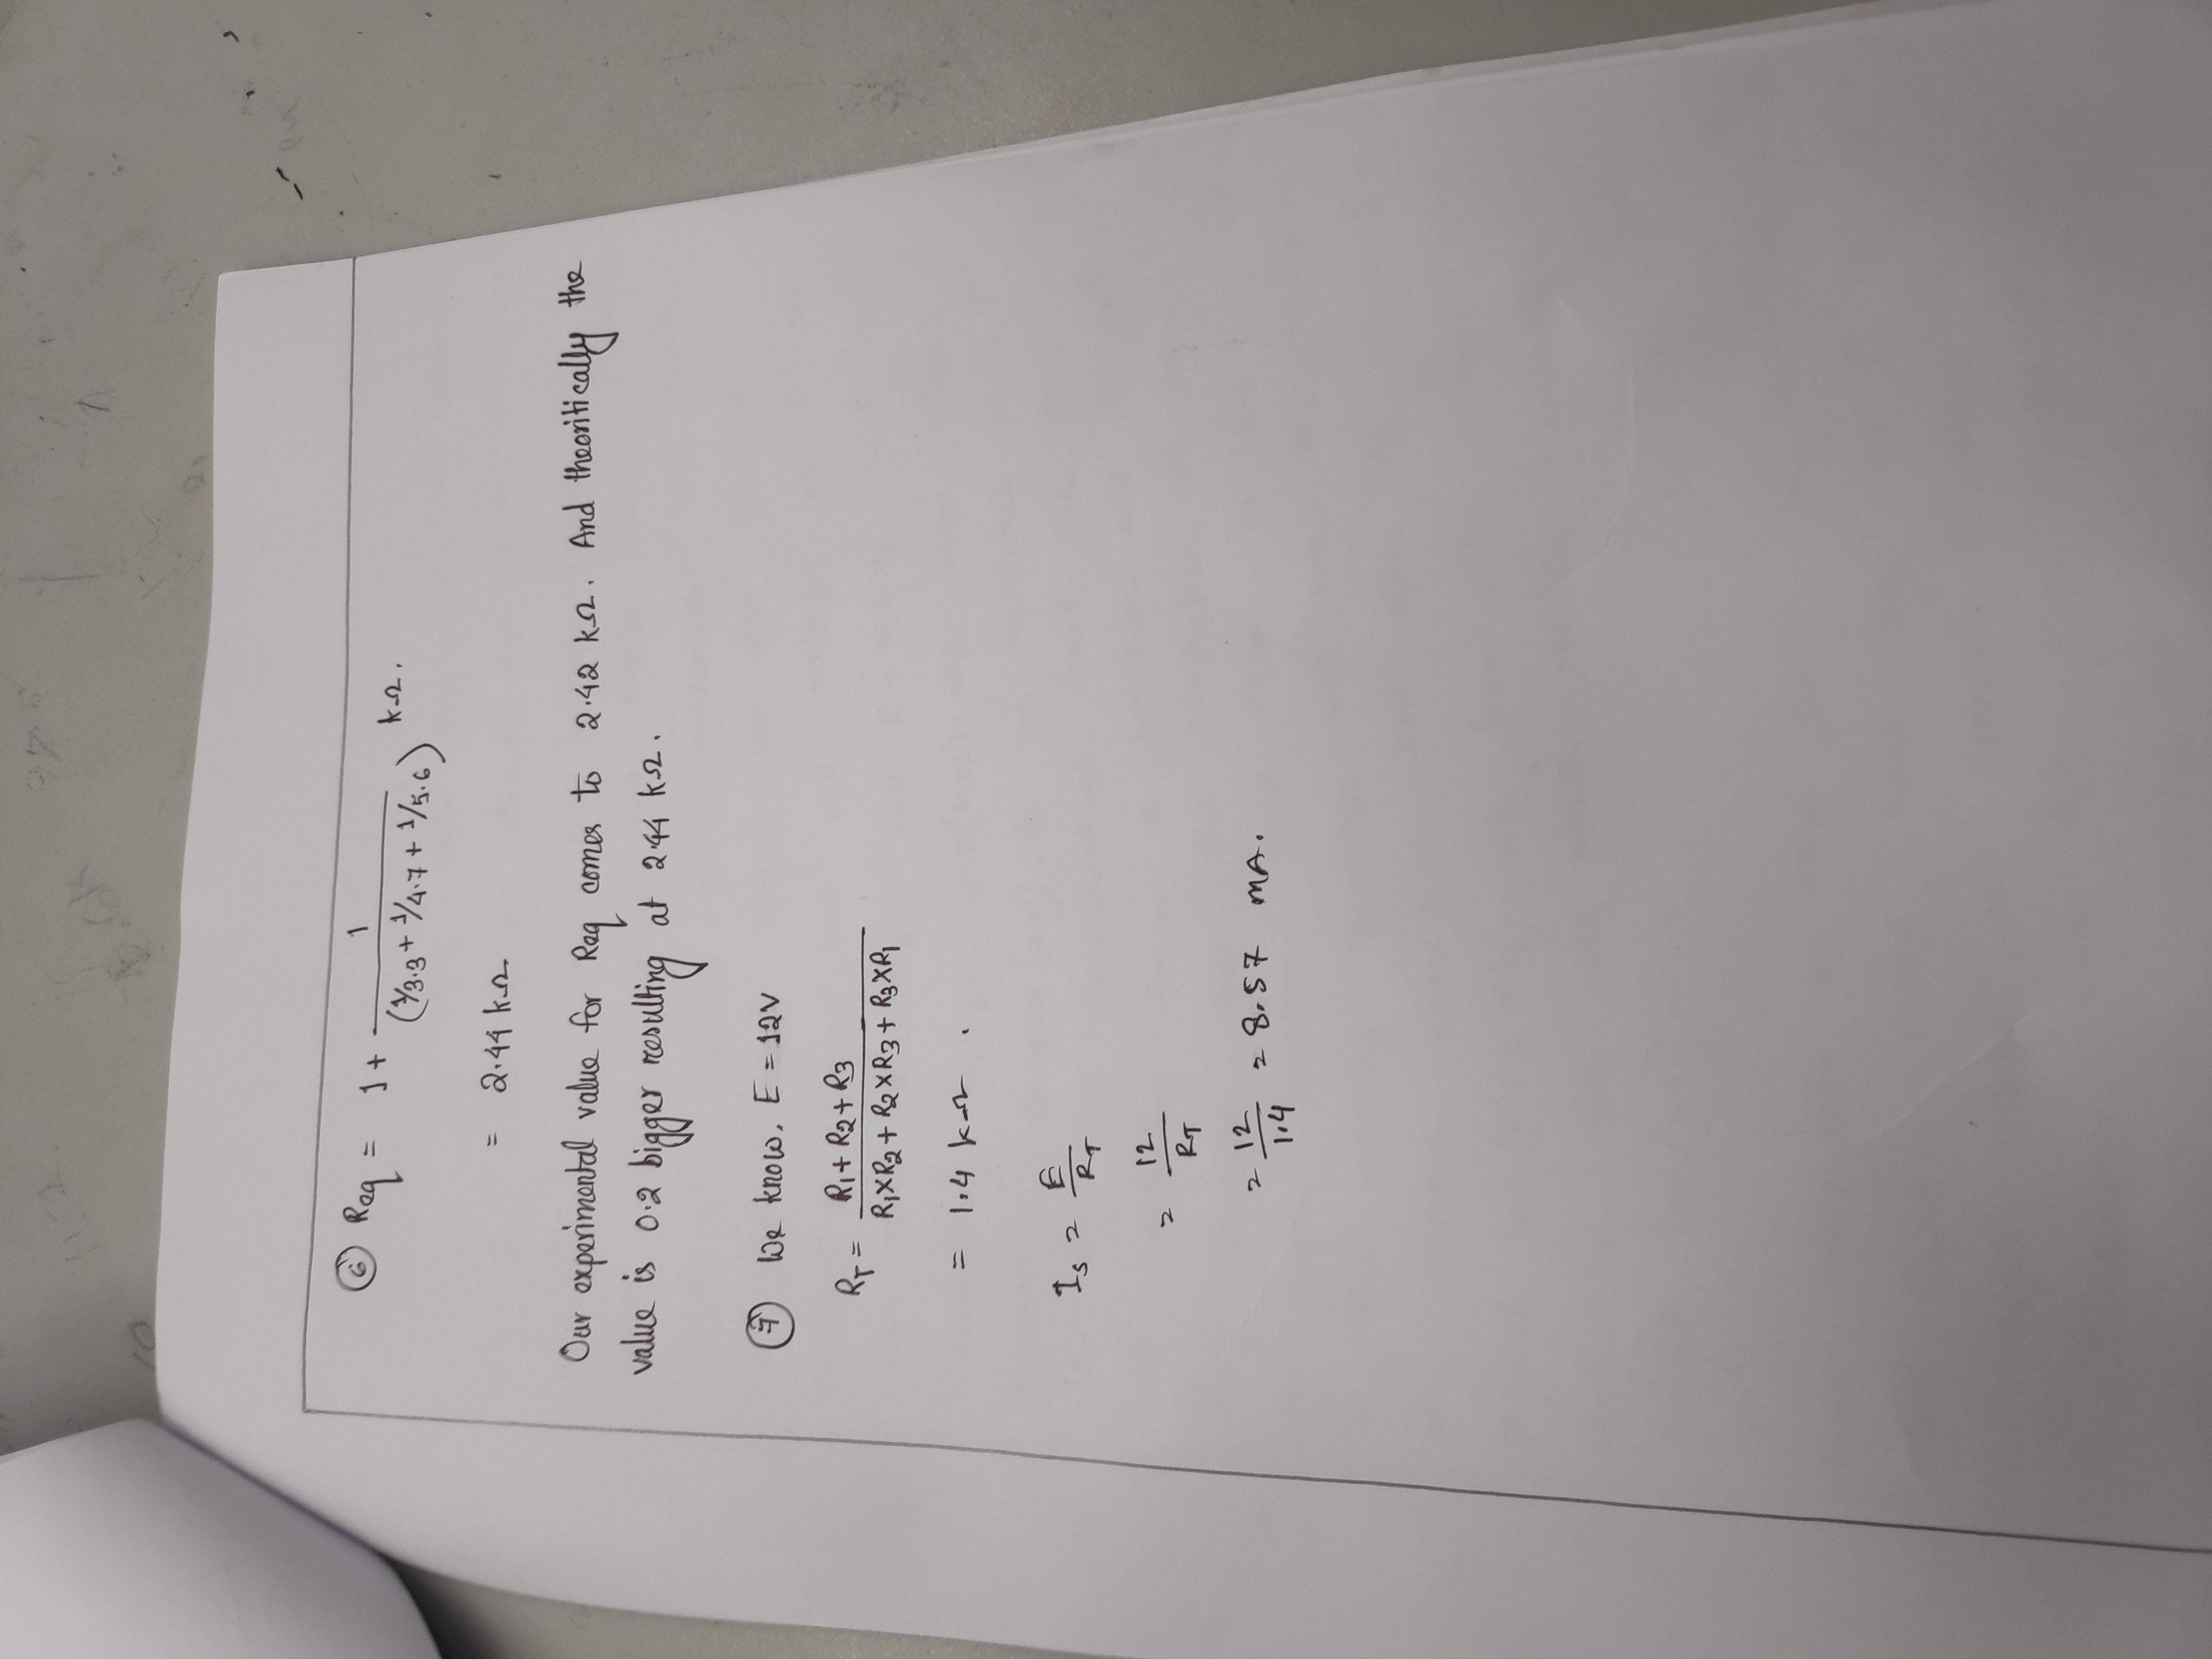 ⑥ Req = 1 + 1 / (1/3.3 + 1/4.7 + 1/5.6) kΩ.
= 2.44 kΩ
Our experimental value for Req comes to 2.42 kΩ. And theoritically the
value is 0.2 bigger resulting at 2.44 kΩ.
⑦ We know, E = 12V
RT = R1 + R2 + R3 / R1×R2 + R2×R3 + R3×R1
= 1.4 kΩ .
Is = E / RT
= 12 / RT
= 12 / 1.4 = 8.57 mA.